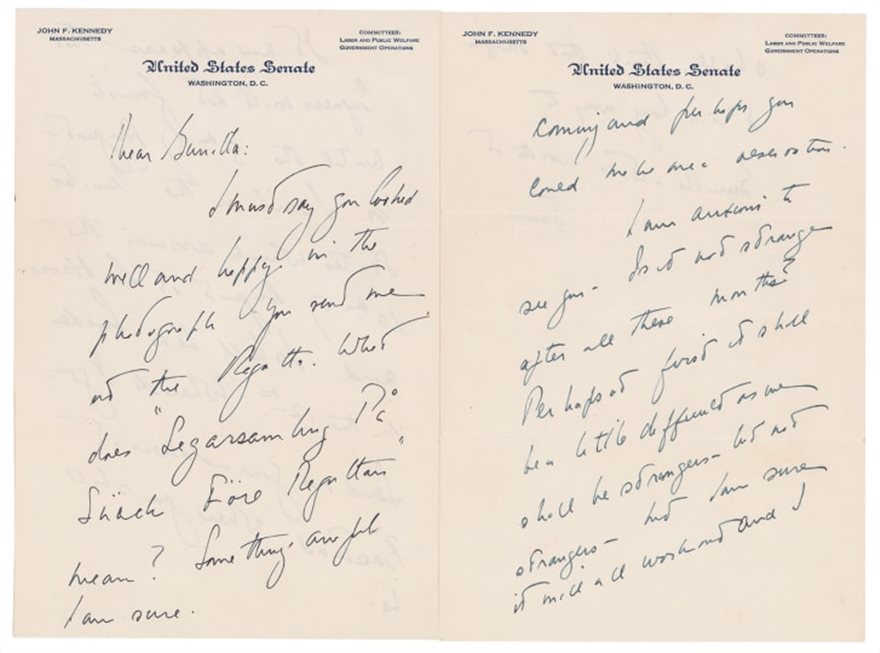 JOHN F. KENNEDY
MASSACHUSETTS
COMMITTEES:
LABOR AND PUBLIC WELFARE
GOVERNMENT OPERATIONS
United States Senate
WASHINGTON, D. C.
Dear Gunilla:
I must say you looked
well and happy in the
photograph you send me
at the Regatta. What
does "Segarsamling På
Före Regattan"
mean? Something awful
I am sure.
JOHN F. KENNEDY
MASSACHUSETTS
COMMITTEES:
LABOR AND PUBLIC WELFARE
GOVERNMENT OPERATIONS
United States Senate
WASHINGTON, D. C.
coming and perhaps you
could make me a reservation.
I am anxious to
see you - Is it not strange
after all these months?
Perhaps at first it shall
be a little difficult as we
shall be strangers - but not
strangers - I am sure
it will all work out and I